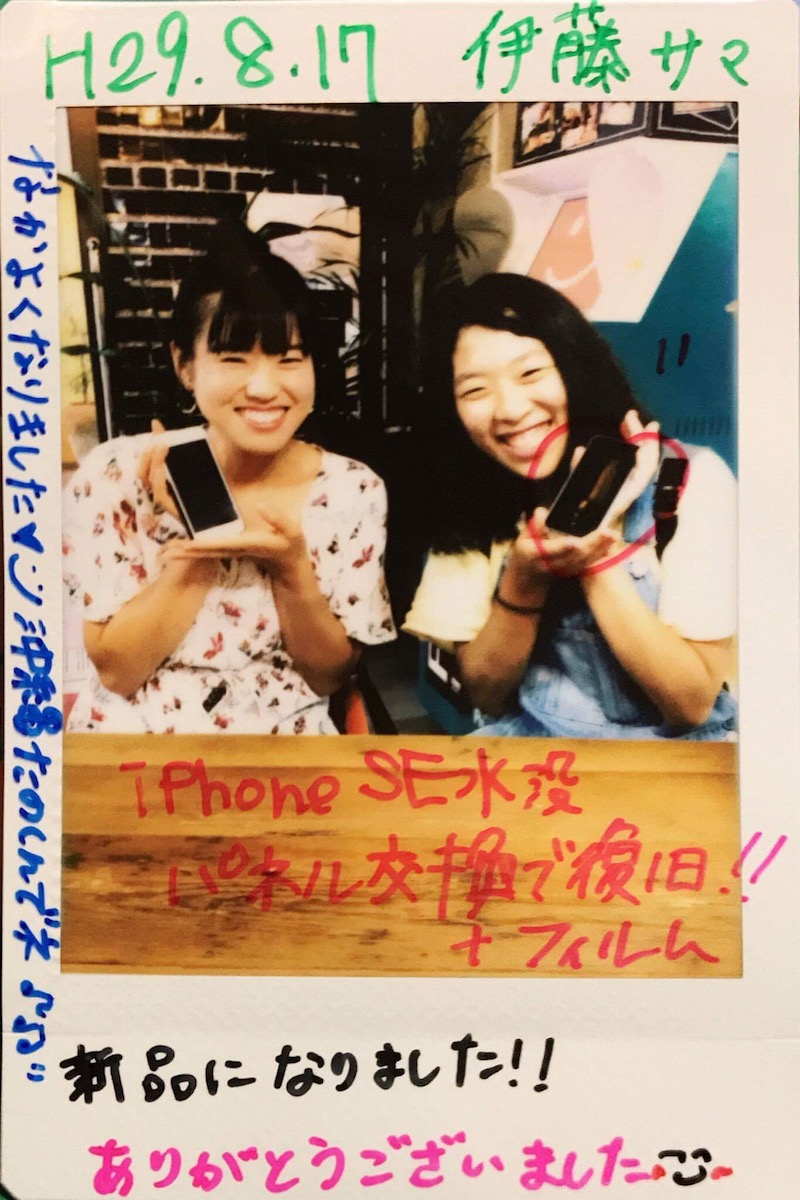 H29.8.17 伊藤サマ
なかよくなりました♥ 沖縄たのしんでネ♪♫
iPhone SE水没
パネル交換で復旧!!
+フィルム
新品になりました!!
ありがとうございました